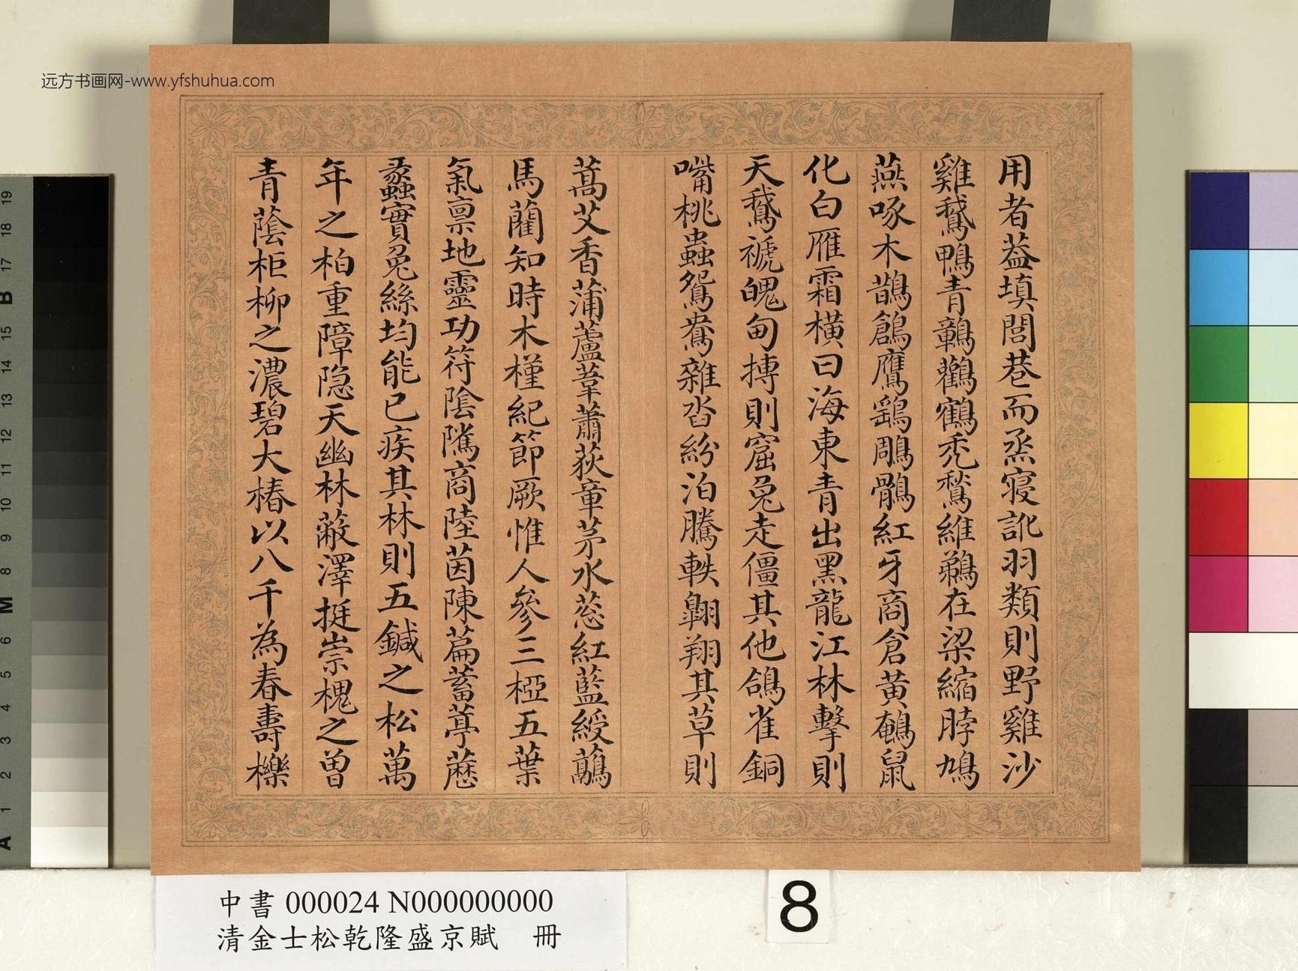 用者益填閭巷而烝寢訛羽類則野雞沙
雞鵝鴨青鶄鸛鶴禿鶖維鵜在梁縮脖鳩
燕啄木鵲鶬鷹鷂鵰鶻紅牙商倉黃鵪鼠
化白雁霜橫曰海東青出黑龍江林擊則
天鵝褫魄甸摶則窟兔走僵其他鴿雀銅
嘴桃蟲鴛鴦雜沓紛泊騰軼翺翔其草則
蒿艾香蒲蘆葦蕭荻章茅水葱紅藍綬虉
馬藺知時木槿紀節厥惟人參三椏五葉
氣禀地靈功符陰隲商陸茵陳萹蓄葶藶
蠡實兔絲均能已疾其林則五鍼之松萬
年之柏重障隐天幽林蔽澤挺崇槐之曾
青蔭柜柳之濃碧大椿以八千為春壽櫟
远方书画网-www.yfshuhua.com
中書 000024 N000000000
清金士松乾隆盛京賦 冊
8
19
18
17
B
15
14
13
12
11
10
9
8
M
6
5
4
3
2
1
A